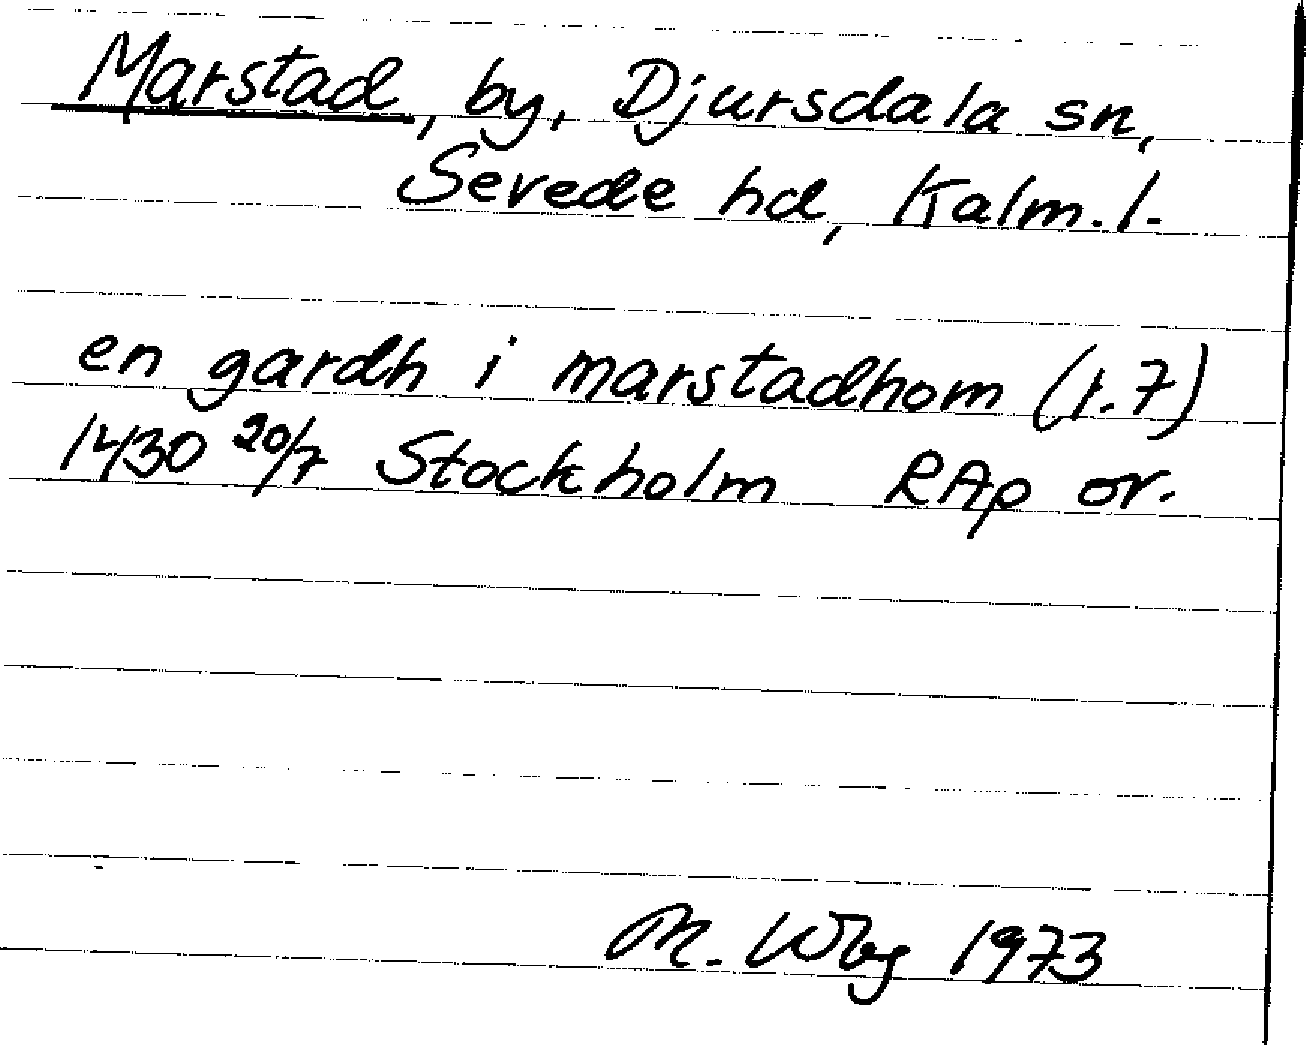 Marstad, by, Djursdala sn,
Sevede hd, Kalm. l.
en gardh i marstadhom (r. 7)
1430 20/7 Stockholm RAp or.
M. Wbg 1973